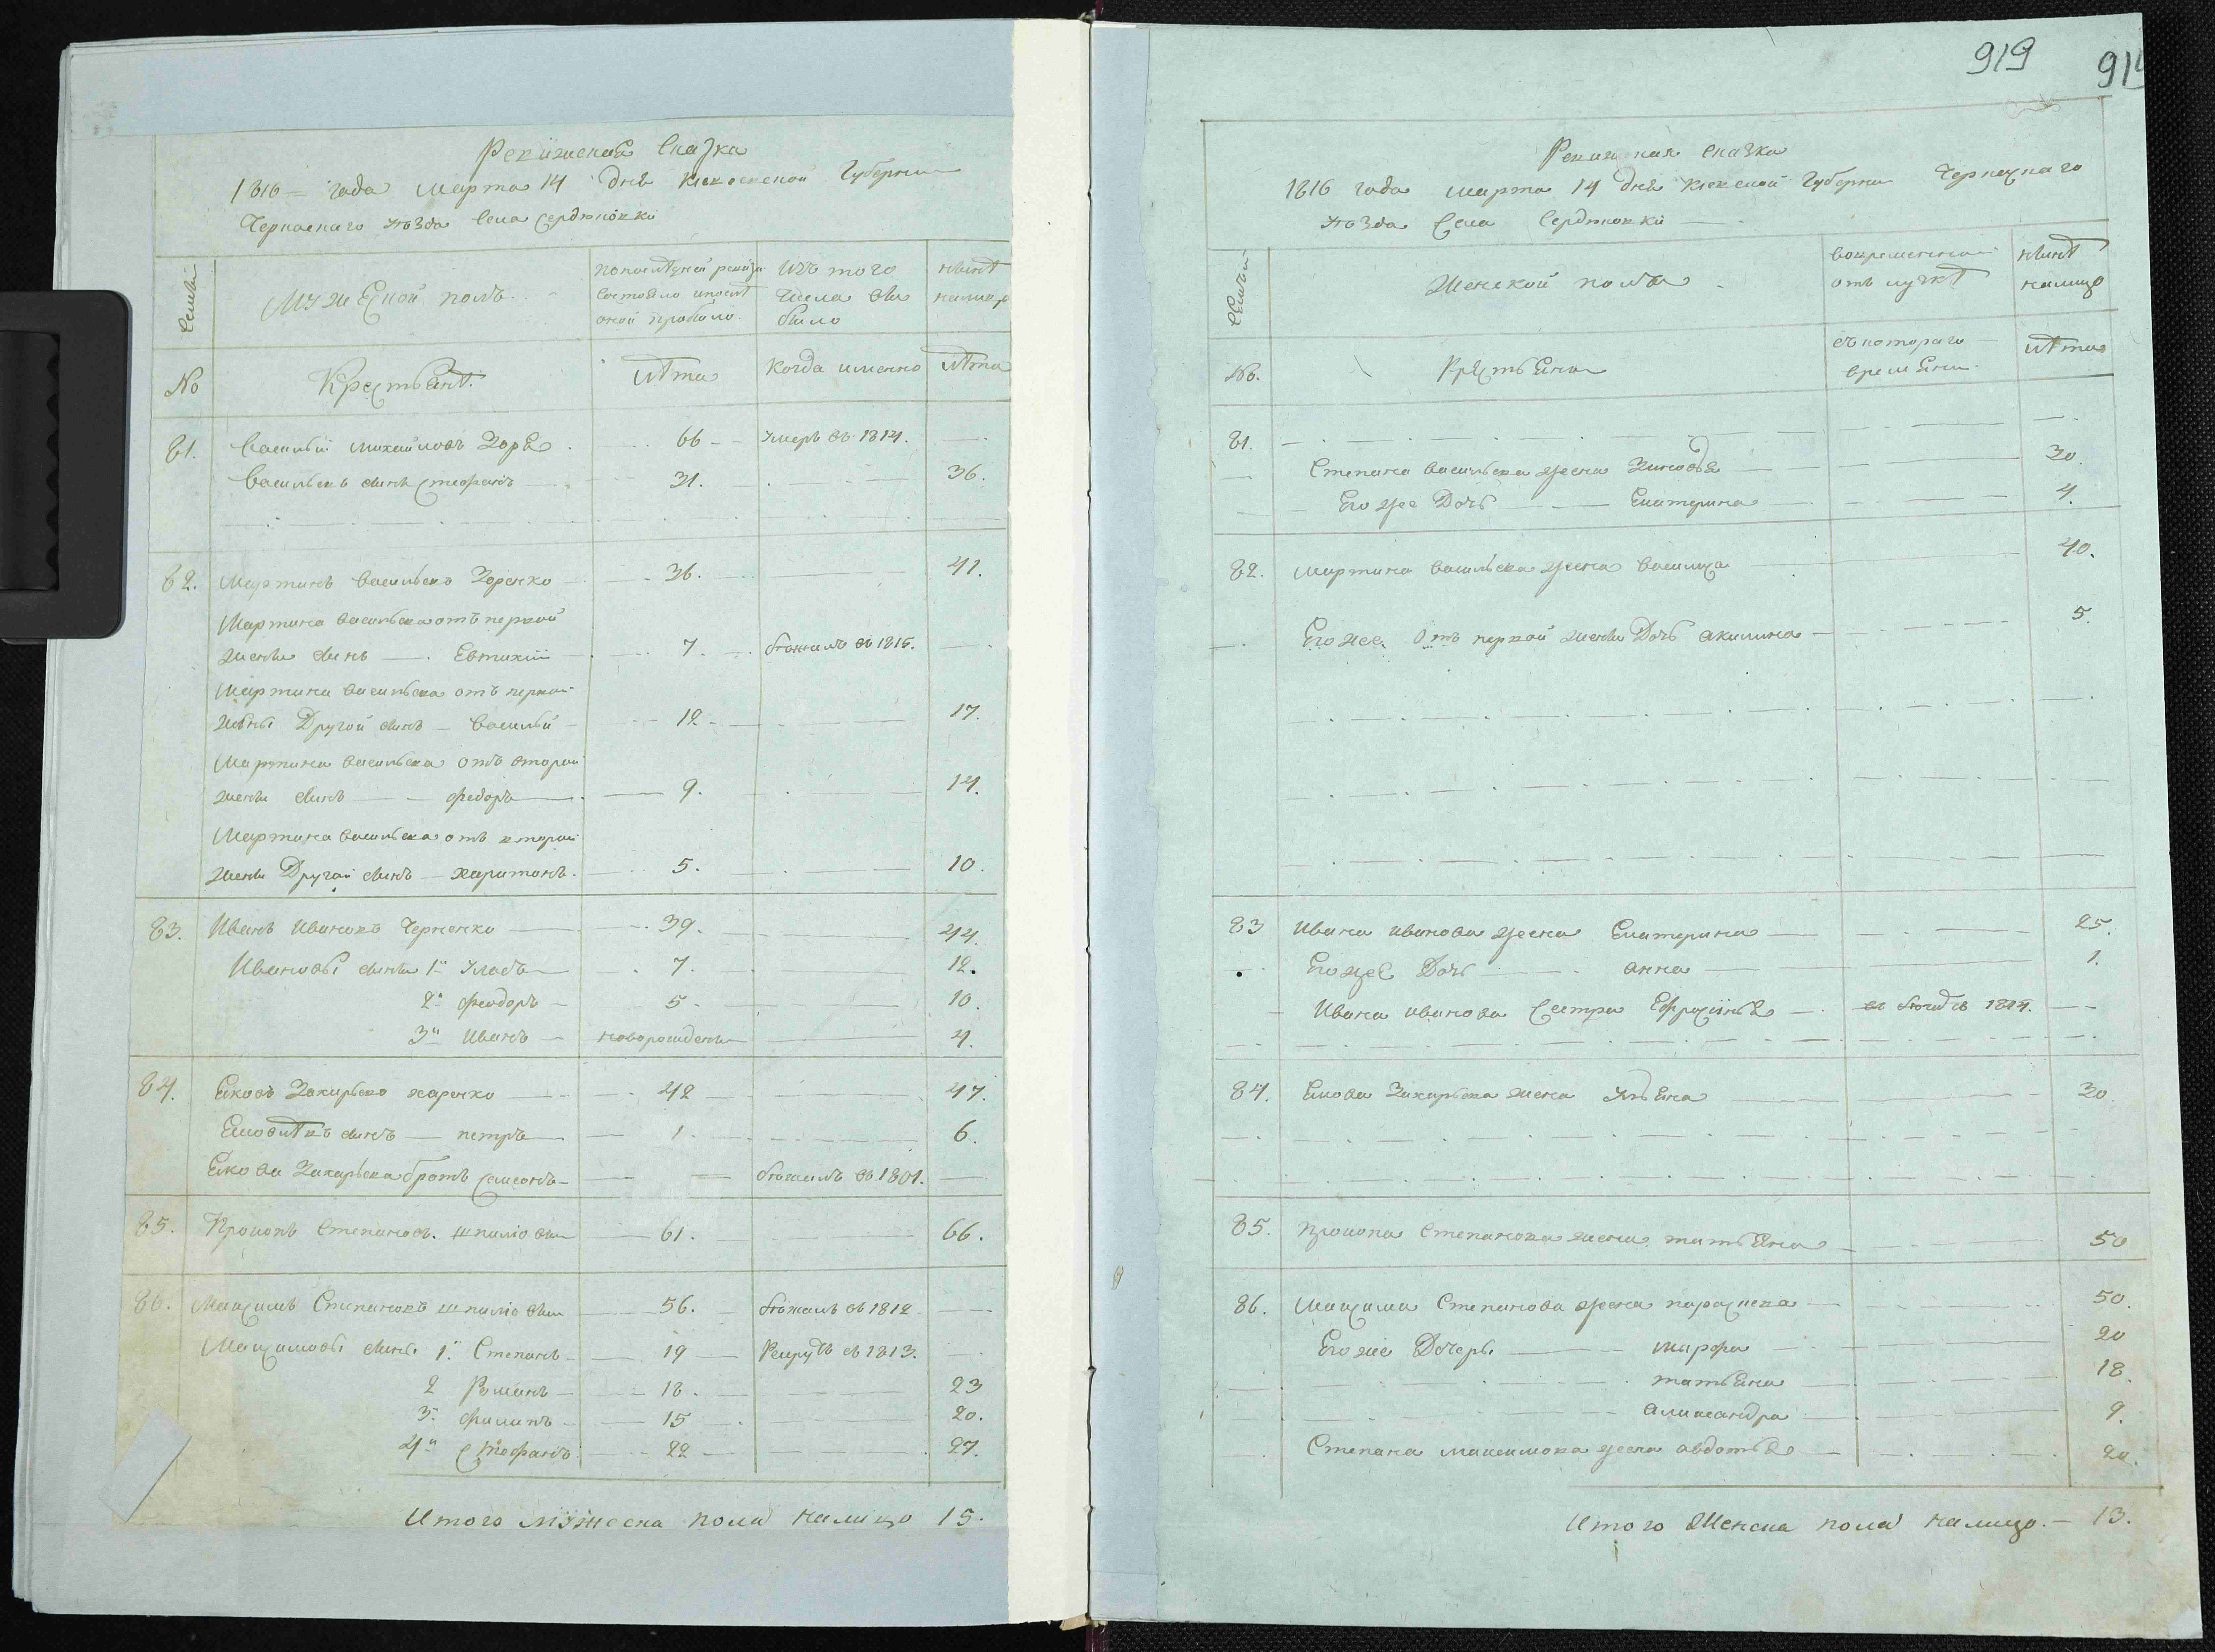 Ревизская Сказка
1816 года Марта 14 дня Киевской Губернии
Черкаскаго уѣзда Села Сердюковки
Семьи
Мужеской полъ.
По последней ревизи состояло и послѣ оной прибыло.
Изъ того числа выбыло
Нынѣ налицо
№
Крестьянѣ.
Лѣта
Когда именно
Лѣта
81. Василий Михайловъ Зоря 66 Умеръ въ 1814.
Васильевъ сынъ Стефанъ 31. 36.
82. Мартинъ Васильевъ Зоренко 36. 41.
Мартина Васильева отъ первой
жены сынъ Евтихий 7. бѣжалъ въ 1815.
Мартина Васильева отъ первой
жены Другой сынъ Василий 12 17.
Мартина Васильева отъ второй
жены сынъ Федоръ 9. 14.
Мартина Васильева отъ второй
жены Другой сынъ Харитонъ. 5. 10.
83. Иванъ Ивановъ Черненко 39. 44.
Ивановы сыны 1й Уласъ 7. 12.
2й Феодоръ 5. 10.
3й Иванъ новорожденъ 4.
84. Яковъ Захарьевъ Харенко 42 47.
Яковлѣвъ сынъ Петръ 1. 6.
Якова Захарьева братъ Семенъ бѣжалъ въ 1801.
85. Прокопъ Степановъ. 61. 66.
86. Максимъ Степановъ 56. бѣжалъ въ 1812
Максимовы сыны 1й Степанъ 19 Рекрутъ въ 1813.
2 Романъ 18. 23
3й Филипъ 15 20.
4й Стефанъ 22 27.
Итого мужеска пола налицо 15.
919
Ревизская Сказка
1816 года Марта 14 дня Киевской Губернии Черкаскаго
уѣзда Села Сердюковки
Семьи
Женской полъ
Вовременной отълучкѣ
Нынѣ налицо
№.
Крестьяни
Съ котораго времени.
Лѣта
81.
Степана Васильева жена Зиновья 30.
Его же Дочь Екатерина 4.
82. Мартина Васильева жена Василиса 40.
Его же. Отъ первой жены Дочь Акилина 5.
83 Ивана Иванова жена Екатерина 25.
Его же Дочь Анна 1.
Ивана Иванова Сестра Ефросинья 1814.
84. Якова Захарьева жена Ульяна 30
85. Прокопа Степанова жена Татьяна 50
86. Максима Степанова жена Параскева 50.
Его же Дочеры Марфа 20
Татьяна 18.
Александра 9.
Степана Максимова жена Авдотья 20.
Итого Женска пола налицо. 13.